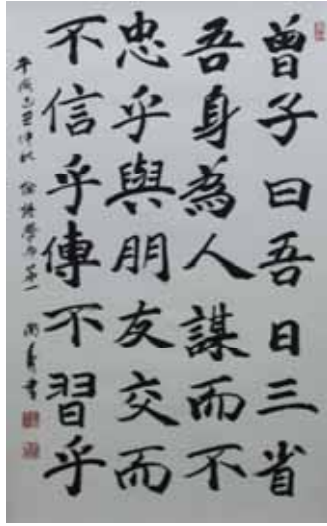 曾子曰吾日三省
吾身為人謀而不
忠乎與朋友交而
不信乎傳不習乎